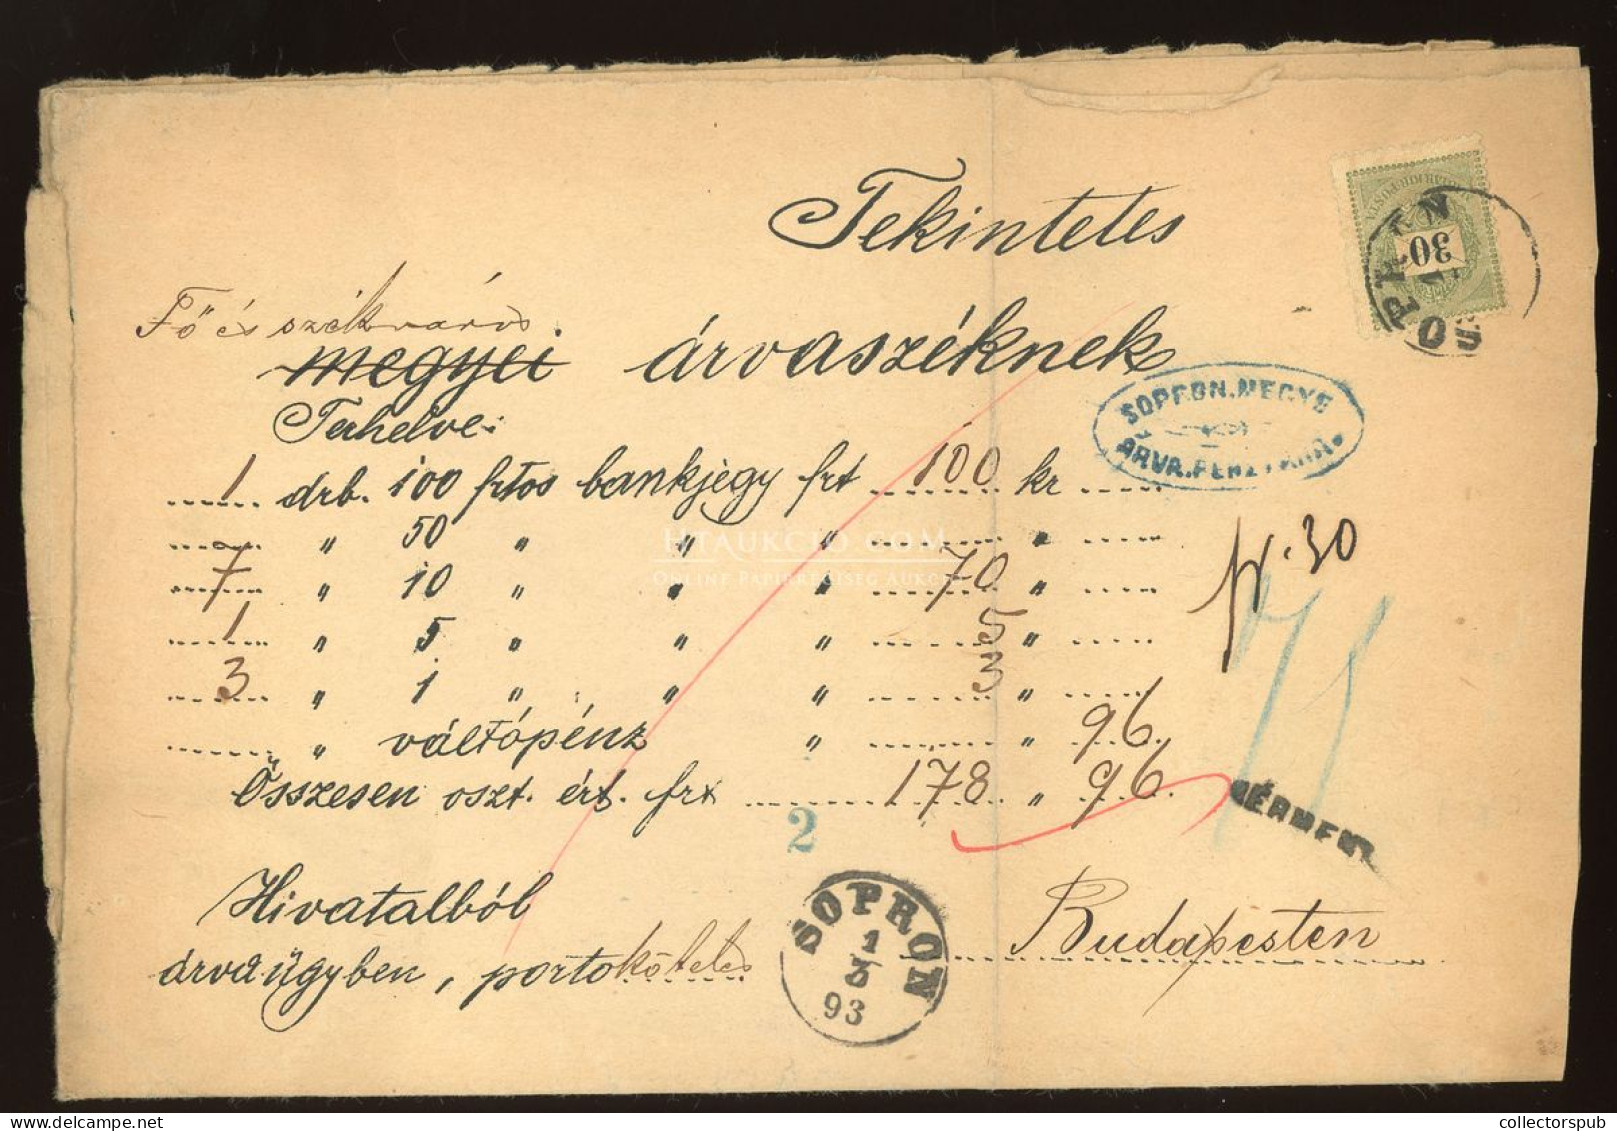 Tekintetes
Fő és székváros
megyei árvaszéknek
Terhelve:
1 drb. 100 frtos bankjegy frt 100 kr
" 50 " " " "
7 " 10 " " " 70 "
1 " 5 " " " 5 "
3 " 1 " " " 3 "
" váltópénz " " 96.
Összesen oszt. ért. frt 178 " 96.
Hivatalból
árvaügyben, portoköteles
Budapesten
30
SOPRON
SOPRON. MEGYE
ÁRVA. PÉNZTÁRA.
30
BÉRMENT.
2
SOPRON
1
3
93
HTAUKCIO.COM
ONLINE PAPÍRRÉGISÉG AUKCIÓ
collectorspub